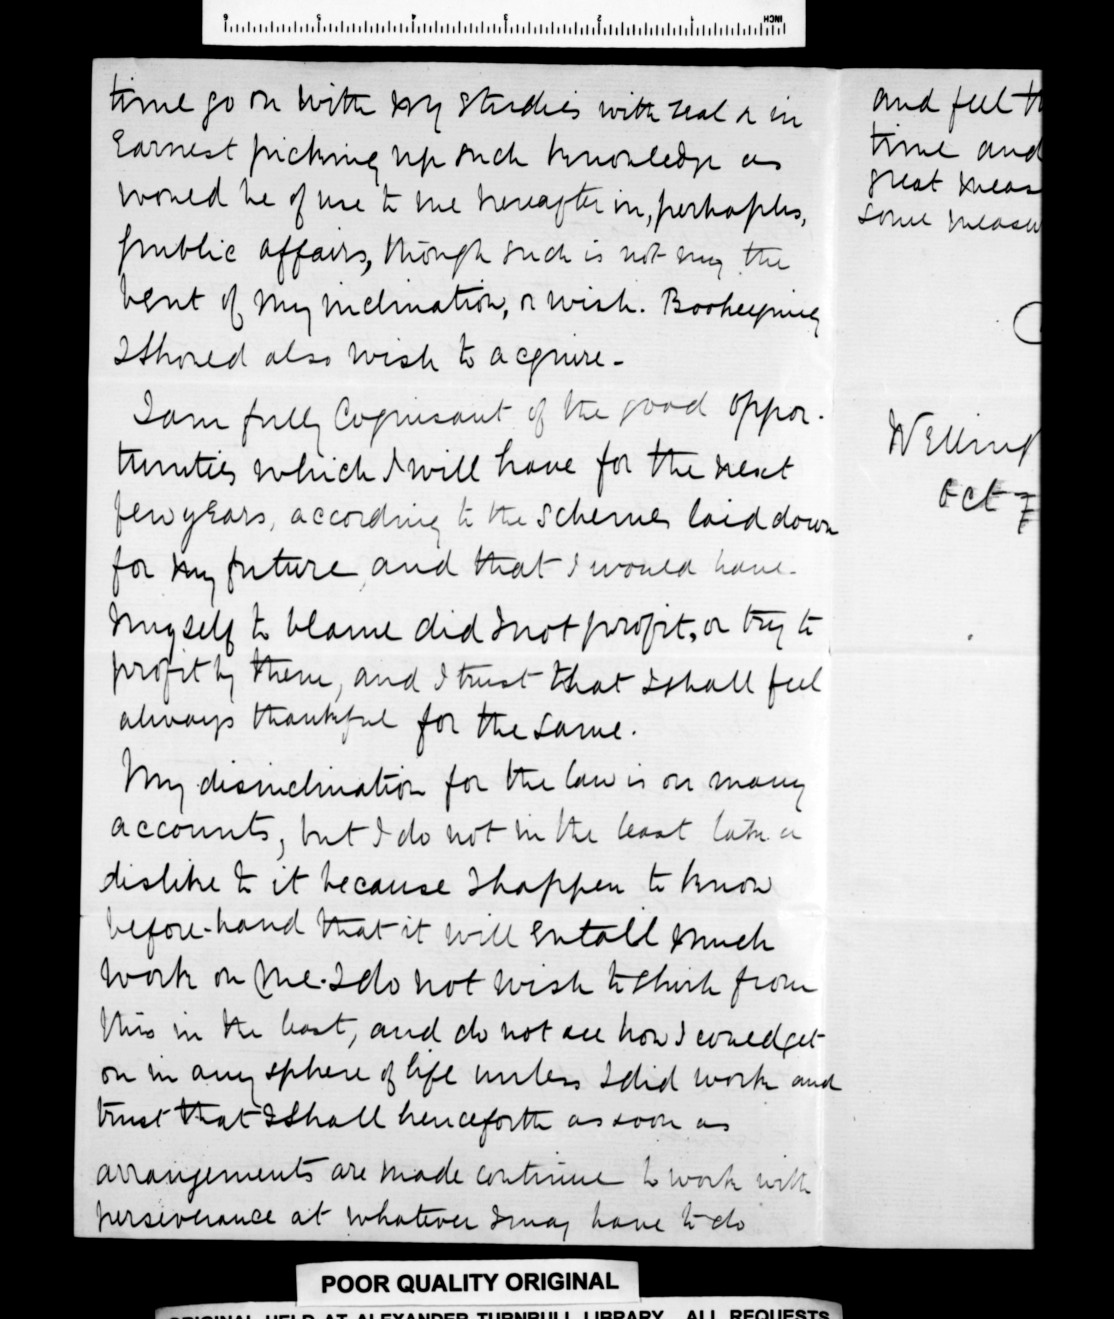 time go on with my studies with zeal & in
Earnest picking up such knowledge as
would be of use to me hereafter in, perhaphs,
public affairs, though such is not my the
bent of my inclination, or wish. Bookeeping
I Should also wish to acquire -
I am fully Cognisant of the good oppor-
tunities which I will have for the next
few years, according to the Schemes laid down
for my future, and that I would have
Myself to blame did I not profit, or try to
profit by them, and I trust that I shall feel
always thankful for the same.
My disinclination for the law is on many
accounts, but I do not in the least take a
dislike to it because I happen to know
before-hand that it will Entall much
work on Me. I do not wish to Shirk from
this in the least, and do not see how I could get
on in any sphere of life unless I did work and
trust that I Shall henceforth as soon as
arrangements are made continue to work with
perseverance at whatever I may have to do
and feel th
time and
great meas
some measu
Welling
Oct 7
INCH
POOR QUALITY ORIGINAL
ORIGINAL HELD AT ALEXANDER TURNBULL LIBRARY. ALL REQUESTS